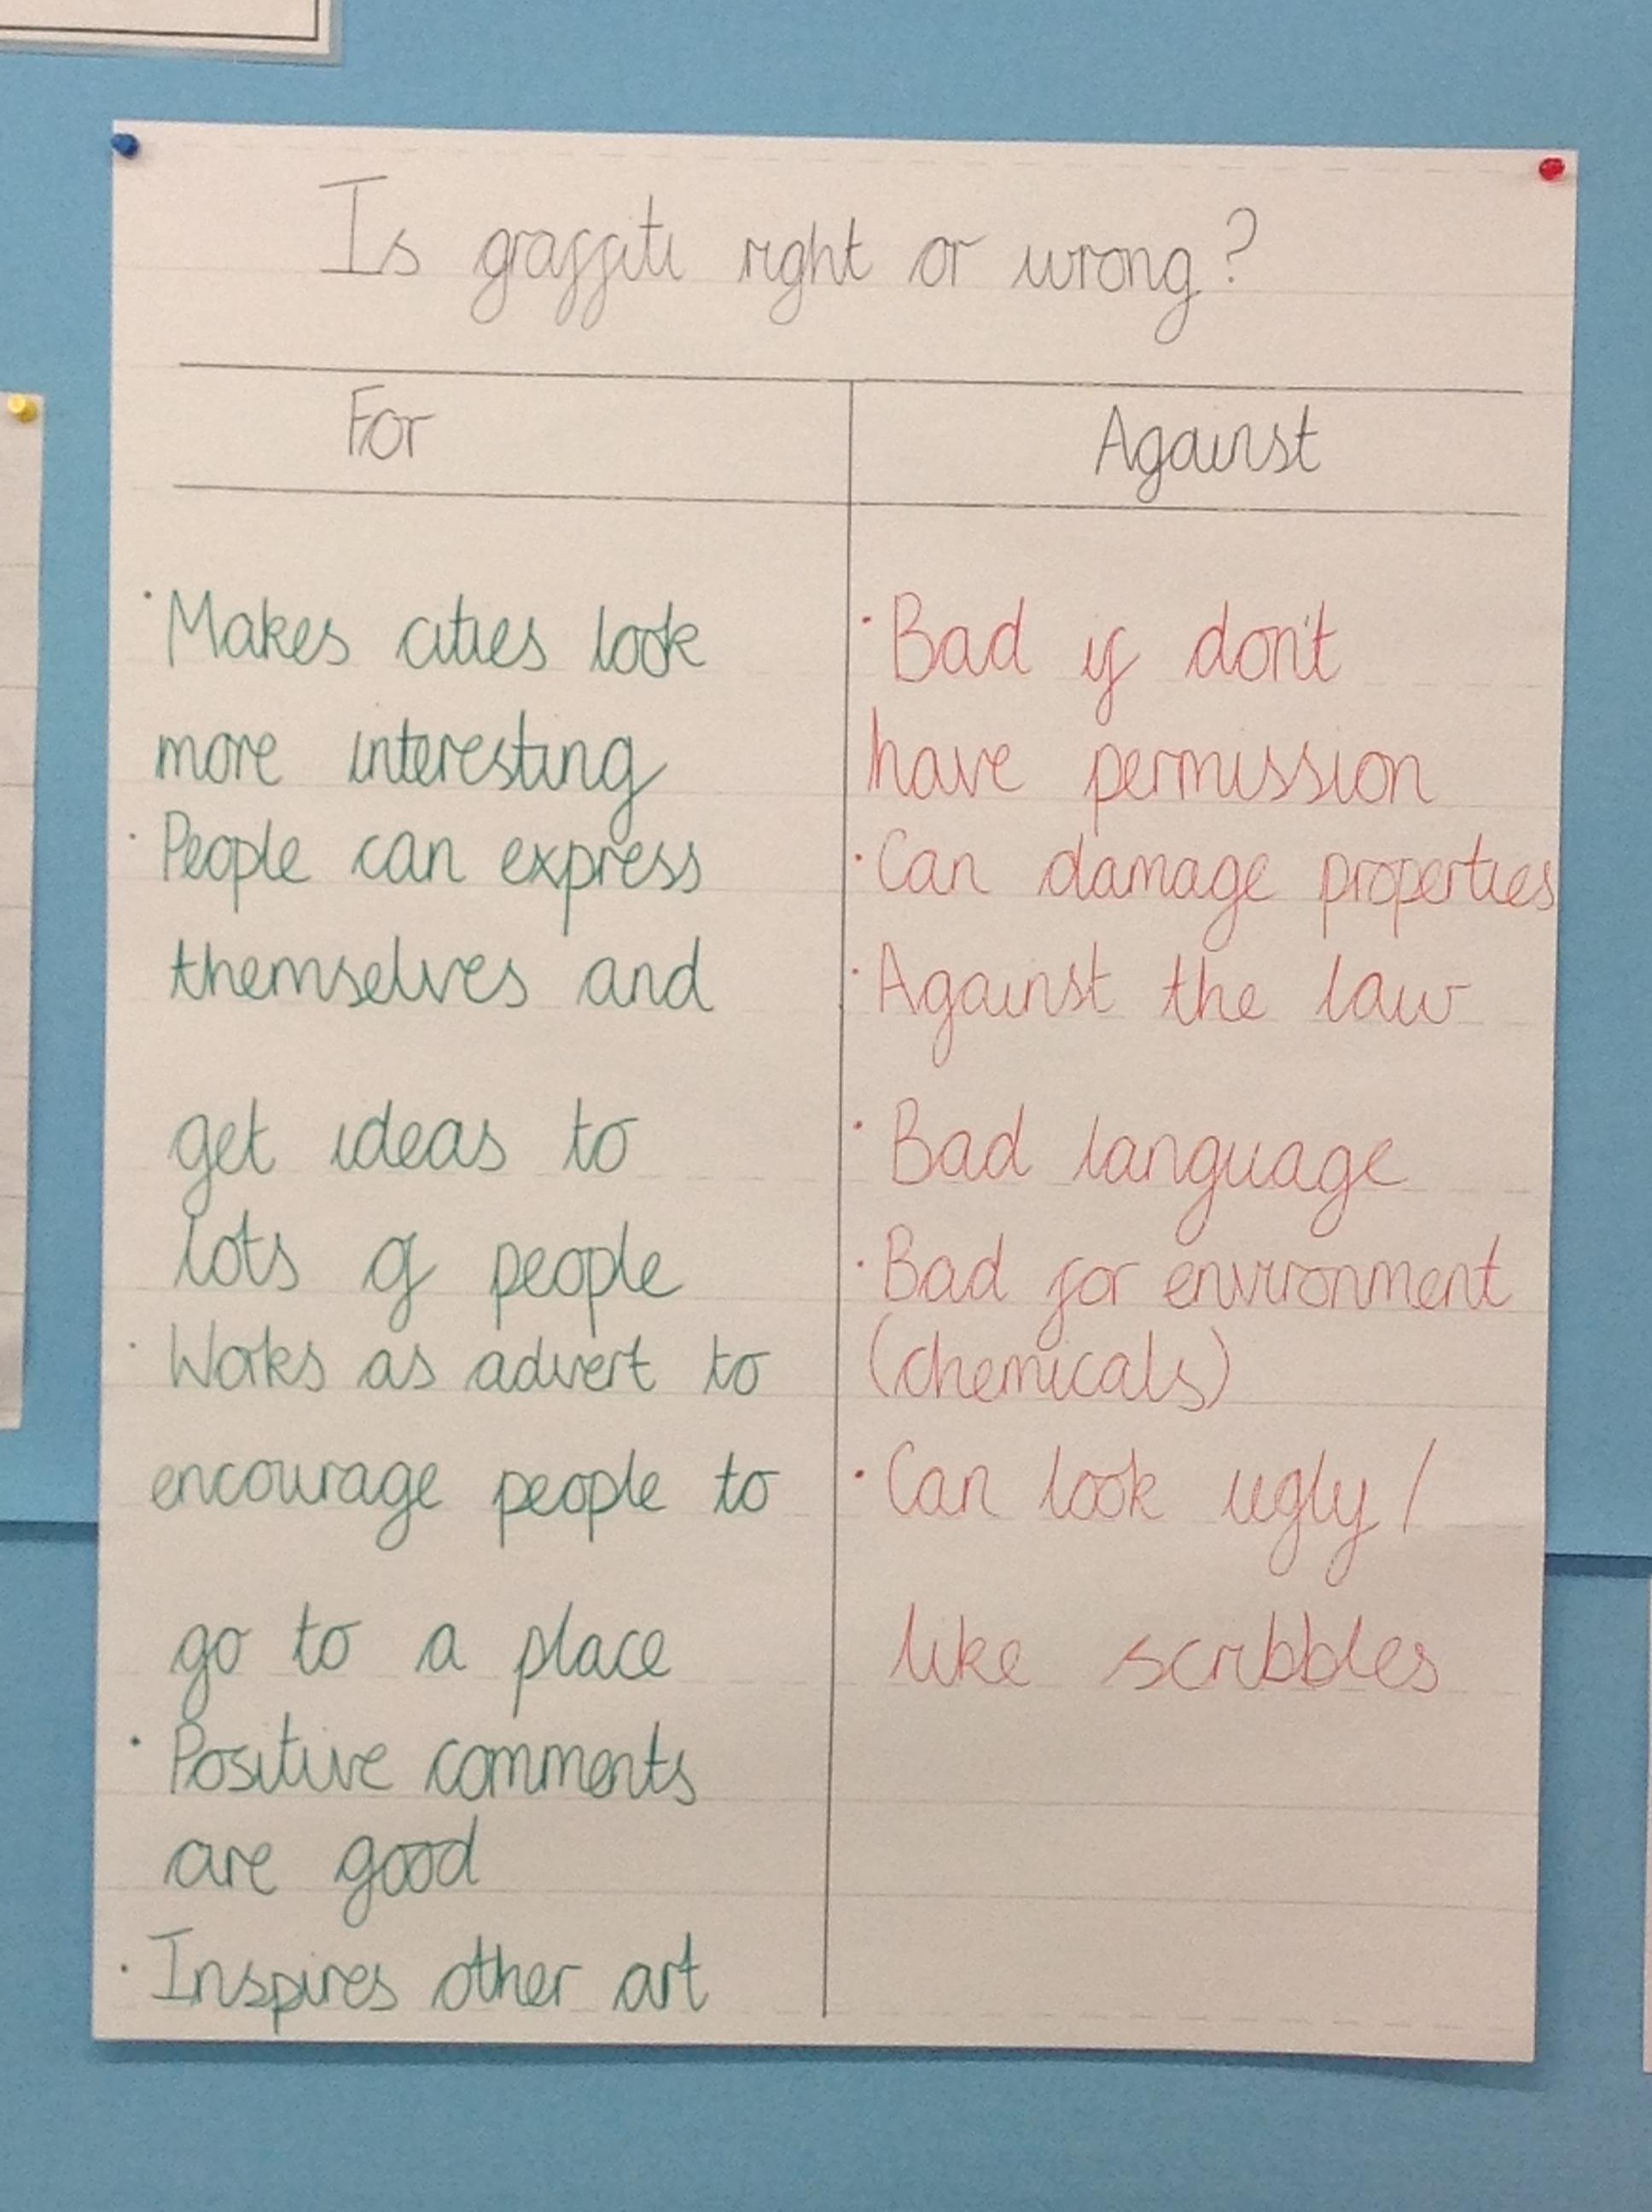 Is graffiti right or wrong?
For
Against
· Makes cities look
more interesting
· People can express
themselves and
get ideas to
lots of people
· Works as advert to
encourage people to
go to a place
· Positive comments
are good
· Inspires other art
· Bad if don't
have permission
· Can damage properties
· Against the law
· Bad language
· Bad for environment
(chemicals)
· Can look ugly /
like scribbles